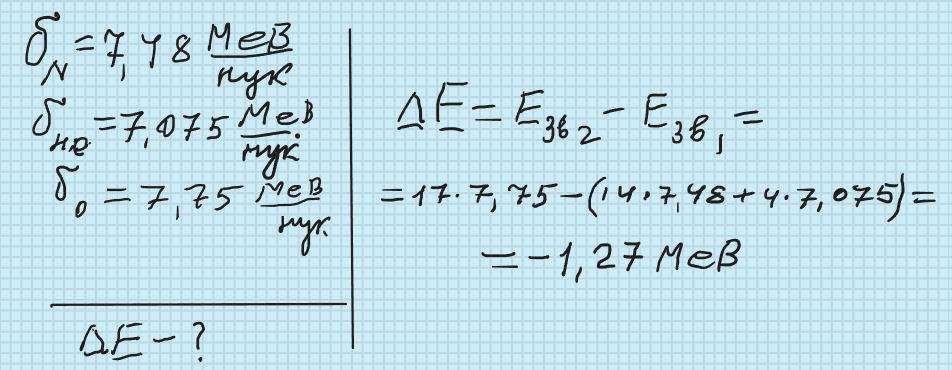 δN = 7,48 МеВ/нук
δHe = 7,075 МеВ/нук.
δO = 7,75 МеВ/нук.
ΔE – ?
ΔE = Eзв2 – Eзв1 =
= 17·7,75 – (14·7,48 + 4·7,075) =
= –1,27 МеВ